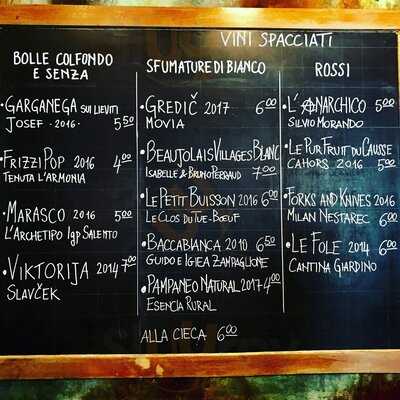 VINI SPACCIATI
BOLLE COLFONDO
E SENZA
•GARGANEGA SUI LIEVITI
JOSEF ·2016· 5,50
•FRIZZIPOP 2016 4,00
TENUTA L'ARMONIA
•MARASCO 2016 5,00
L'ARCHETIPO Igp SALENTO
•VIKTORIJA 2014 7,00
SLAVČEK
SFUMATURE DI BIANCO
•GREDIČ 2017 6,00
MOVIA
•BEAUJOLAIS VILLAGES BLANC
ISABELLE & BRUNO PERRAUD 7,00
•LE PETIT BUISSON 2016 6,00
LE CLOS DU TUE-BŒUF
•BACCABIANCA 2010 6,50
GUIDO E IGIEA ZAMPAGLIONE
•PAMPANEO NATURAL 2017 4,00
ESENCIA RURAL
ALLA CIECA 6,00
ROSSI
•L'ANARCHICO 5,00
SILVIO MORANDO
•LE PUR FRUIT DU CAUSSE
CAHORS 2016 5,00
•FORKS AND KNIVES 2016
MILAN NESTAREC 6,00
•LE FOLE 2014 6,00
CANTINA GIARDINO